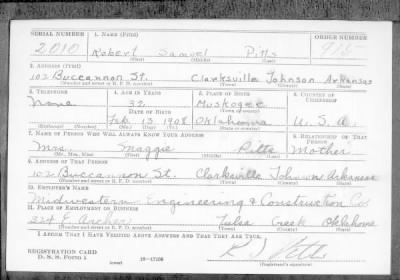 SERIAL NUMBER 1. NAME (Print) ORDER NUMBER
2010 Robert Samuel Pitts 915
(First) (Middle) (Last)
2. ADDRESS (Print)
102 Buccannon St. Clarksville Johnson Arkansas
(Number and street or R. F. D. number) (Town) (County) (State)
3. TELEPHONE 4. AGE IN YEARS 5. PLACE OF BIRTH 6. COUNTRY OF CITIZENSHIP
None 32 Muskogee
DATE OF BIRTH (Town or county)
Feb 13 1908 Oklahoma U.S.A.
(Exchange) (Number) (Mo.) (Day) (Yr.) (State or country)
7. NAME OF PERSON WHO WILL ALWAYS KNOW YOUR ADDRESS 8. RELATIONSHIP OF THAT PERSON
Mrs. Maggie Pitts Mother
(Mr., Mrs., Miss) (First) (Middle) (Last)
9. ADDRESS OF THAT PERSON
102 Buccannon St. Clarksville Johnson Arkansas
(Number and street or R. F. D. number) (Town) (County) (State)
10. EMPLOYER'S NAME
Midwestern Engineering & Construction Co
11. PLACE OF EMPLOYMENT OR BUSINESS
224 E. Archer Tulsa Creek Oklahoma
(Number and street or R. F. D. number) (Town) (County) (State)
I AFFIRM THAT I HAVE VERIFIED ABOVE ANSWERS AND THAT THEY ARE TRUE.
REGISTRATION CARD
D. S. S. Form 1 (over) 16—17105
(Registrant's signature)